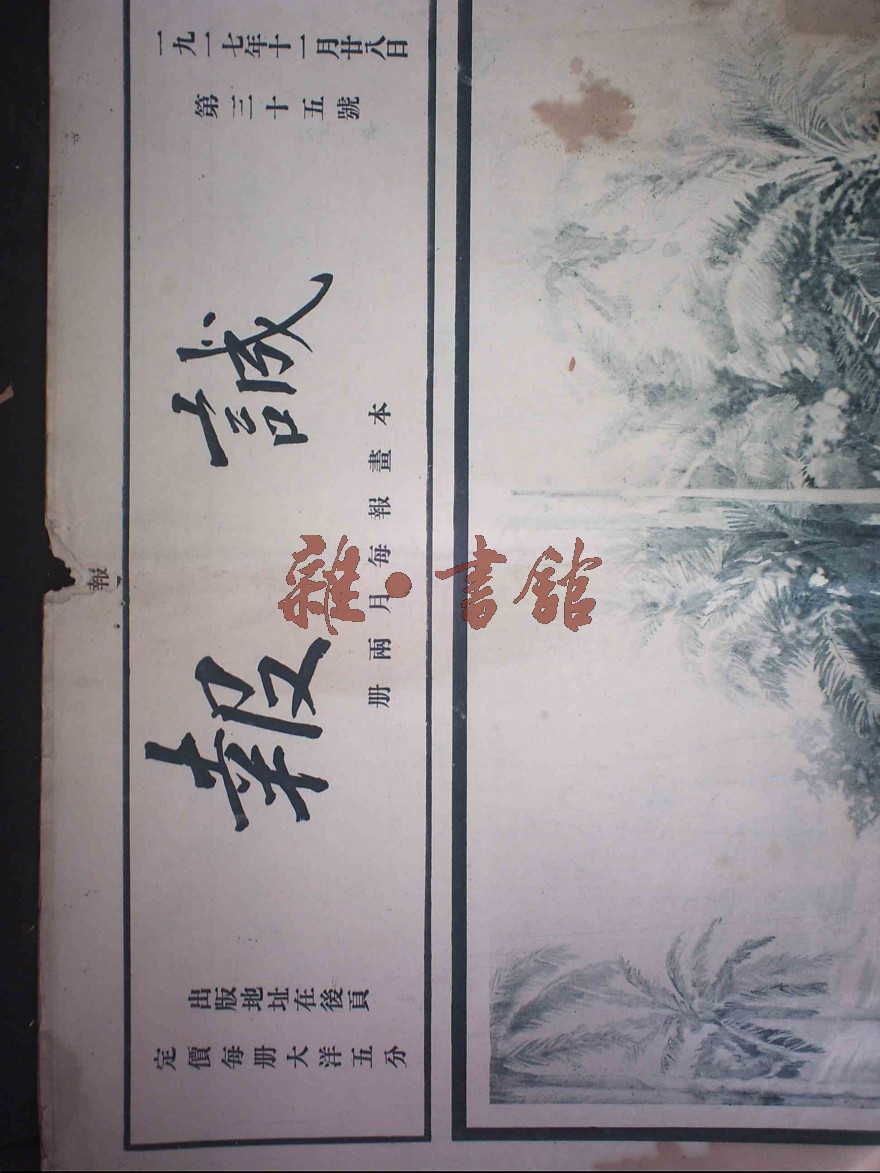 一九一七年十一月廿八日
第三十五號
誠報
本畫報每月兩册
出版地址在後頁
定價每册大洋五分
報
雜·書館